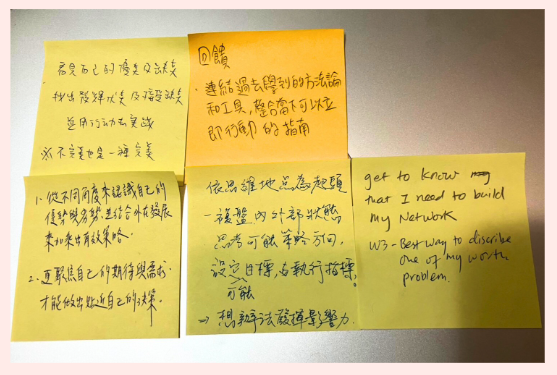 看見自己的優點及缺點
找出發揮優點及接受缺點
並用行動去實踐
必不完美也是一種完美
回饋
・連結過去學到的方法論
和工具,整合當下可以立
即行動的指南
1. 從不同角度來認識自己的
優勢與劣勢,並結合外在發展
來和來出有效策略。
2. 更聚焦自己的期待與需求,
才能做出貼近自己的決策。
依思維地点為起頭
一複盤內外部狀態
思考可能策略方向,
設定目標,与執行指標
可能
⇒ 想辦法發揮影響力.
get to know
that I need to build
my Network
W3 - Best way to discribe
one of my worth
problem.